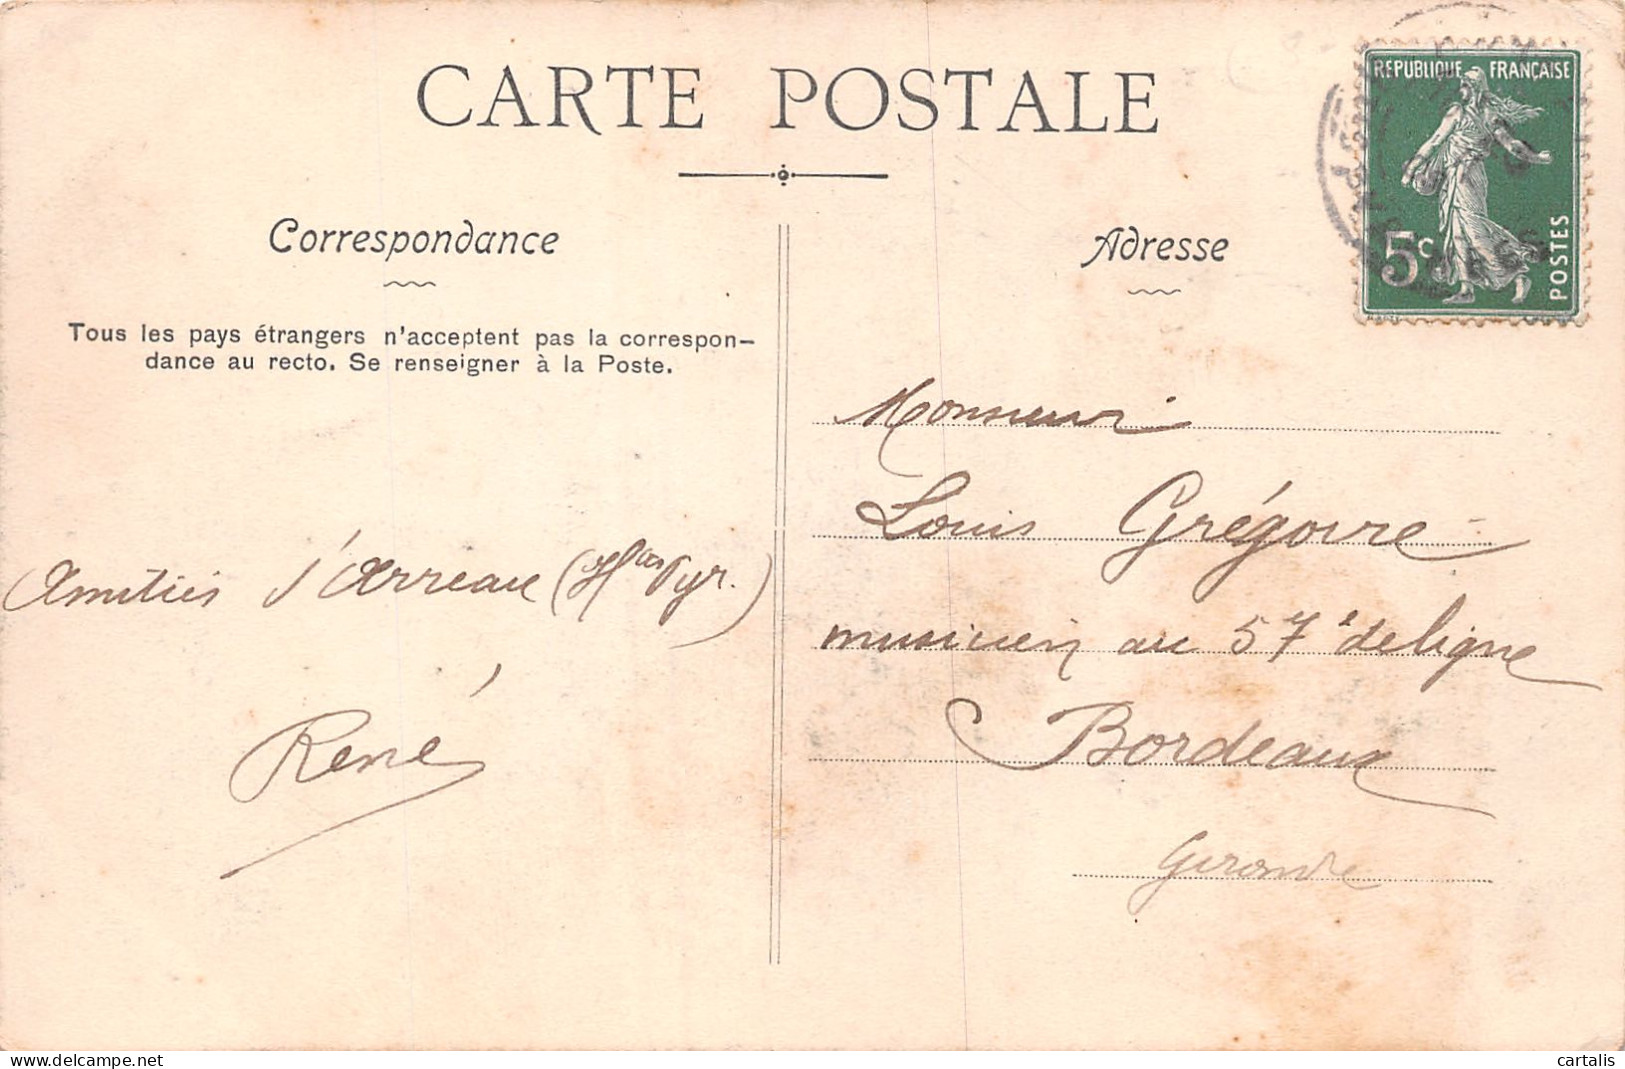 CARTE POSTALE
RÉPUBLIQUE FRANÇAISE
5c
POSTES
Correspondance
Adresse
Tous les pays étrangers n'acceptent pas la correspon-
dance au recto. Se renseigner à la Poste.
Amitiés d'Arreau (Htes Pyr.)
René
Monsieur
Louis Grégoire
musicien au 57e de ligne
Bordeaux
Gironde
delcampe.net
cartalis